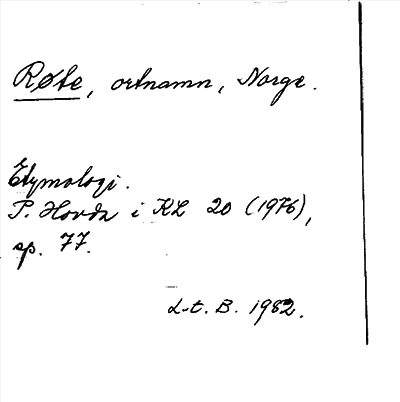 Røte, ortnamn, Norge.
Etymologi.
P. Hovda i KL 20 (1976),
sp. 77.
L-t. B. 1982.